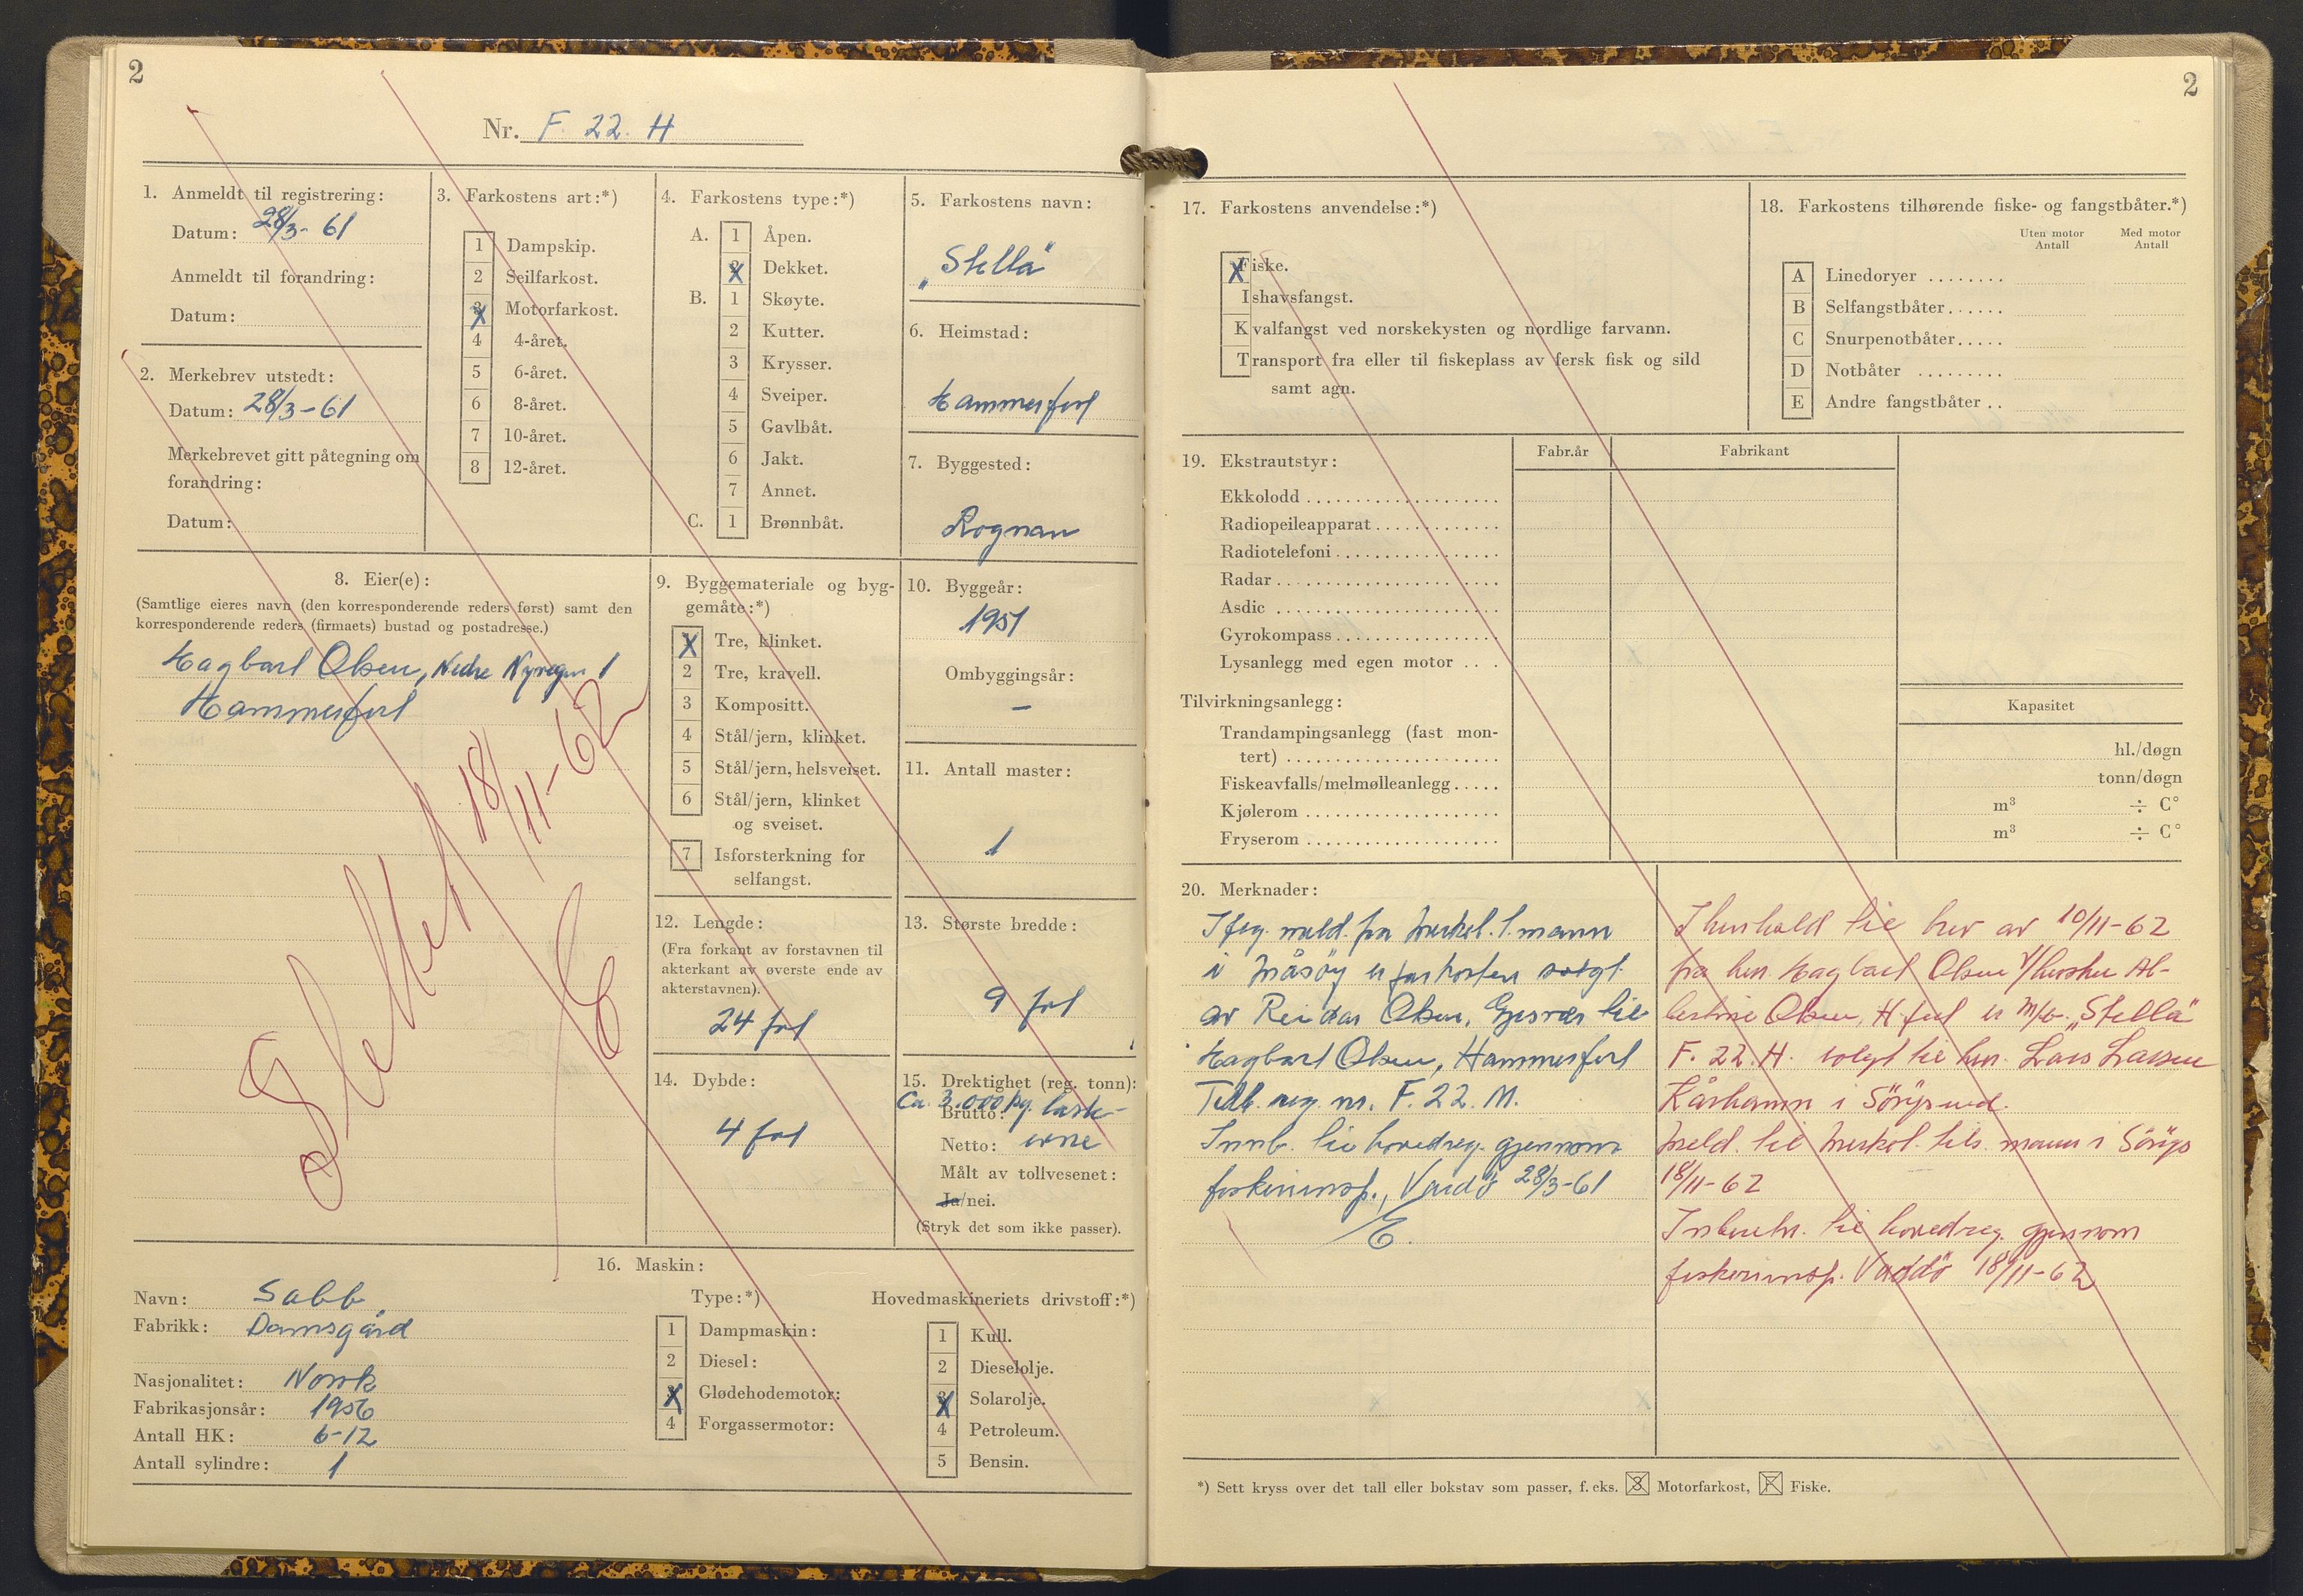 2
Nr. F. 22. H
1. Anmeldt til registrering:
Datum: 28/3- 61
Anmeldt til forandring:
Datum:
2. Merkebrev utstedt:
Datum: 28/3-61
Merkebrevet gitt påtegning om
forandring:
Datum:
3. Farkostens art:*)
1 Dampskip.
2 Seilfarkost.
3 Motorfarkost.
4 4-året.
5 6-året.
6 8-året.
7 10-året.
8 12-året.
4. Farkostens type:*)
A. 1 Åpen.
2 Dekket.
B. 1 Skøyte.
2 Kutter.
3 Krysser.
4 Sveiper.
5 Gavlbåt.
6 Jakt.
7 Annet.
C. 1 Brønnbåt.
5. Farkostens navn:
„Stella"
6. Heimstad:
Hammerfest
7. Byggested:
Rognan
8. Eier(e):
(Samtlige eieres navn (den korresponderende reders først) samt den
korresponderende reders (firmaets) bustad og postadresse.)
Hagbart Olsen, Nedre Nyvegen 1
Hammerfest
Slettet 18/11-62
E
9. Byggemateriale og byg-
gemåte:*)
X Tre, klinket.
2 Tre, kravell.
3 Kompositt.
4 Stål/jern, klinket.
5 Stål/jern, helsveiset.
6 Stål/jern, klinket
og sveiset.
7 Isforsterkning for
selfangst.
10. Byggeår:
1951
Ombyggingsår:
-
11. Antall master:
1
12. Lengde:
(Fra forkant av forstavnen til
akterkant av øverste ende av
akterstavnen).
24 fot
13. Største bredde:
9 fot
14. Dybde:
4 fot
15. Drektighet (reg. tonn):
Ca. 3.000 kg. laste-
Brutto:
Netto: evne
Målt av tollvesenet:
Ja/nei.
(Stryk det som ikke passer).
16. Maskin:
Navn: Sabb
Fabrikk: Damsgård
Nasjonalitet: Norsk
Fabrikasjonsår: 1956
Antall HK: 6-12
Antall sylindre: 1
Type:*)
1 Dampmaskin:
2 Diesel:
X Glødehodemotor:
4 Forgassermotor:
Hovedmaskineriets drivstoff:*)
1 Kull.
2 Dieselolje.
X Solarolje.
4 Petroleum.
5 Bensin.
2
17. Farkostens anvendelse:*)
Fiske.
Ishavsfangst.
Kvalfangst ved norskekysten og nordlige farvann.
Transport fra eller til fiskeplass av fersk fisk og sild
samt agn.
18. Farkostens tilhørende fiske- og fangstbåter.*)
Uten motor Antall
Med motor Antall
A Linedoryer
B Selfangstbåter
C Snurpenotbåter
D Notbåter
E Andre fangstbåter
19. Ekstrautstyr:
Fabr.år
Fabrikant
Ekkolodd
Radiopeileapparat
Radiotelefoni
Radar
Asdic
Gyrokompass
Lysanlegg med egen motor
Tilvirkningsanlegg:
Kapasitet
Trandampingsanlegg (fast mon-
tert) hl./døgn
Fiskeavfalls/melmølleanlegg tonn/døgn
Kjølerom m³ ÷ C°
Fryserom m³ ÷ C°
20. Merknader:
Iflg. meld. fra merkel. t.mann
i Måsøy er farkosten solgt
av Reidar Olsen, Gjesvær til
Hagbart Olsen, Hammerfest
Tidl. reg. nr. F. 22. M.
Innb. til hovedreg. gjennom
fiskeriinsp., Vardö 28/3-61
E.
I henhold til brev av 10/11-62
fra hr. Hagbart Olsen v/hustru Al-
bertine Olsen, H.fest er m/b. „Stella"
F. 22. H. solgt til hr. Lars Larsen
Kårhamn i Sörøysund.
Meld. til merkel. tils. mann i Sörøys
18/11-62
Innberetn. til hovedreg. gjennom
fiskeriinsp. Vardö 18/11-62
*) Sett kryss over det tall eller bokstav som passer, f. eks. 3 Motorfarkost, F Fiske.